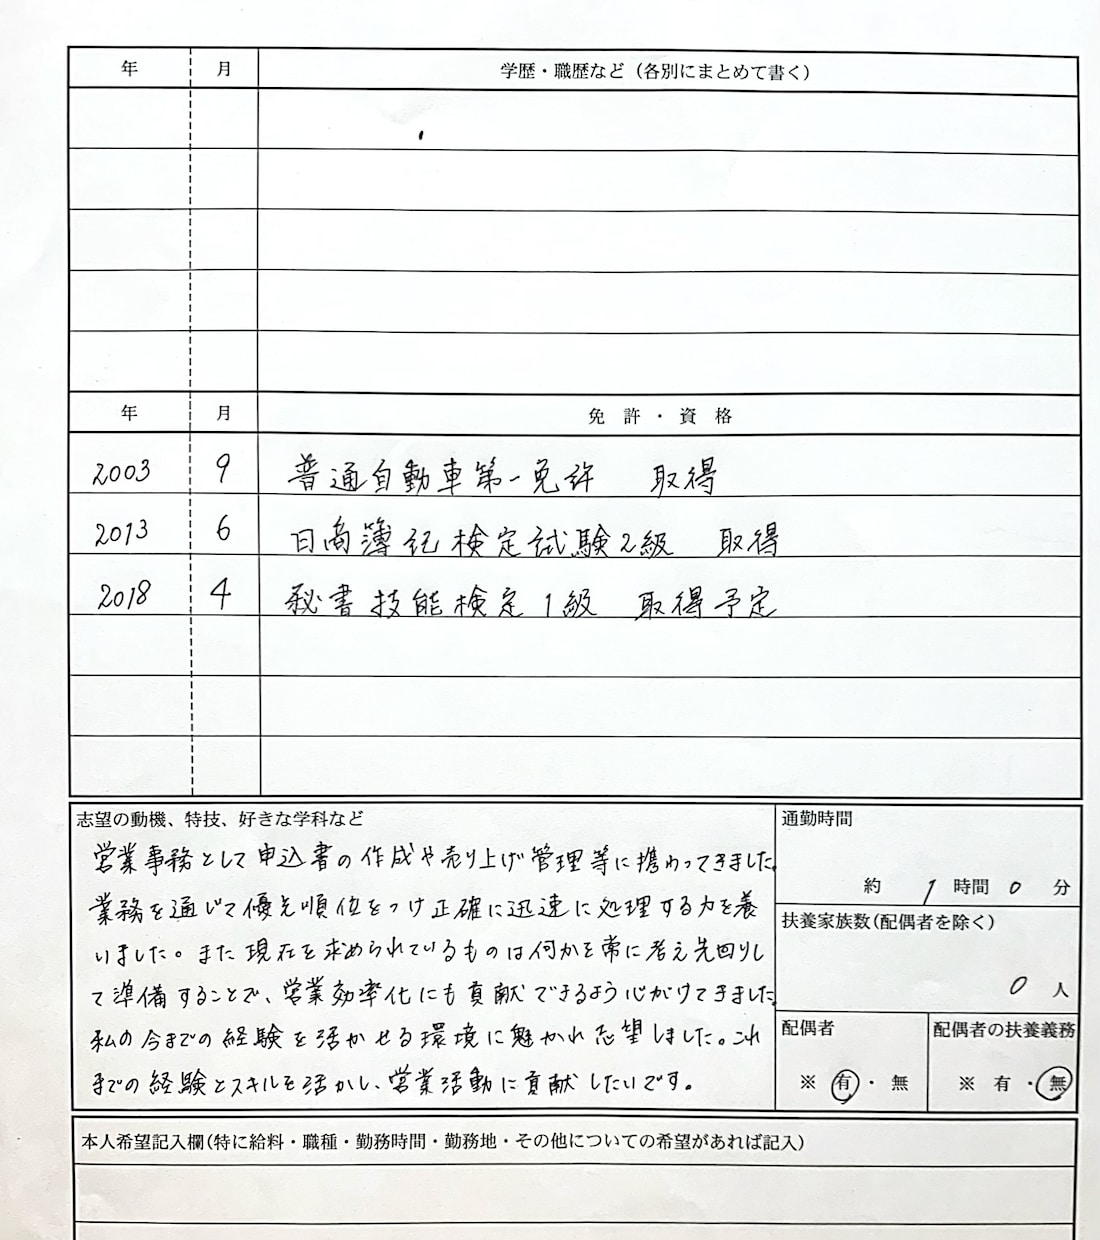 年 月 学歴・職歴など（各別にまとめて書く）
年 月 免許・資格
2003 9 普通自動車第一免許 取得
2013 6 日商簿記検定試験2級 取得
2018 4 秘書技能検定1級 取得予定
志望の動機、特技、好きな学科など
営業事務として申込書の作成や売り上げ管理等に携わってきました。
業務を通じて優先順位をつけ正確に迅速に処理する力を養
いました。また現在を求められているものは何かを常に考え先回りし
て準備することで、営業効率化にも貢献できるよう心がけてきました。
私の今までの経験を活かせる環境に魅かれ志望しました。これ
までの経験とスキルを活かし、営業活動に貢献したいです。
通勤時間
約 1 時間 0 分
扶養家族数(配偶者を除く)
0 人
配偶者
※ 有 ・ 無
配偶者の扶養義務
※ 有 ・ 無
本人希望記入欄(特に給料・職種・勤務時間・勤務地・その他についての希望があれば記入)